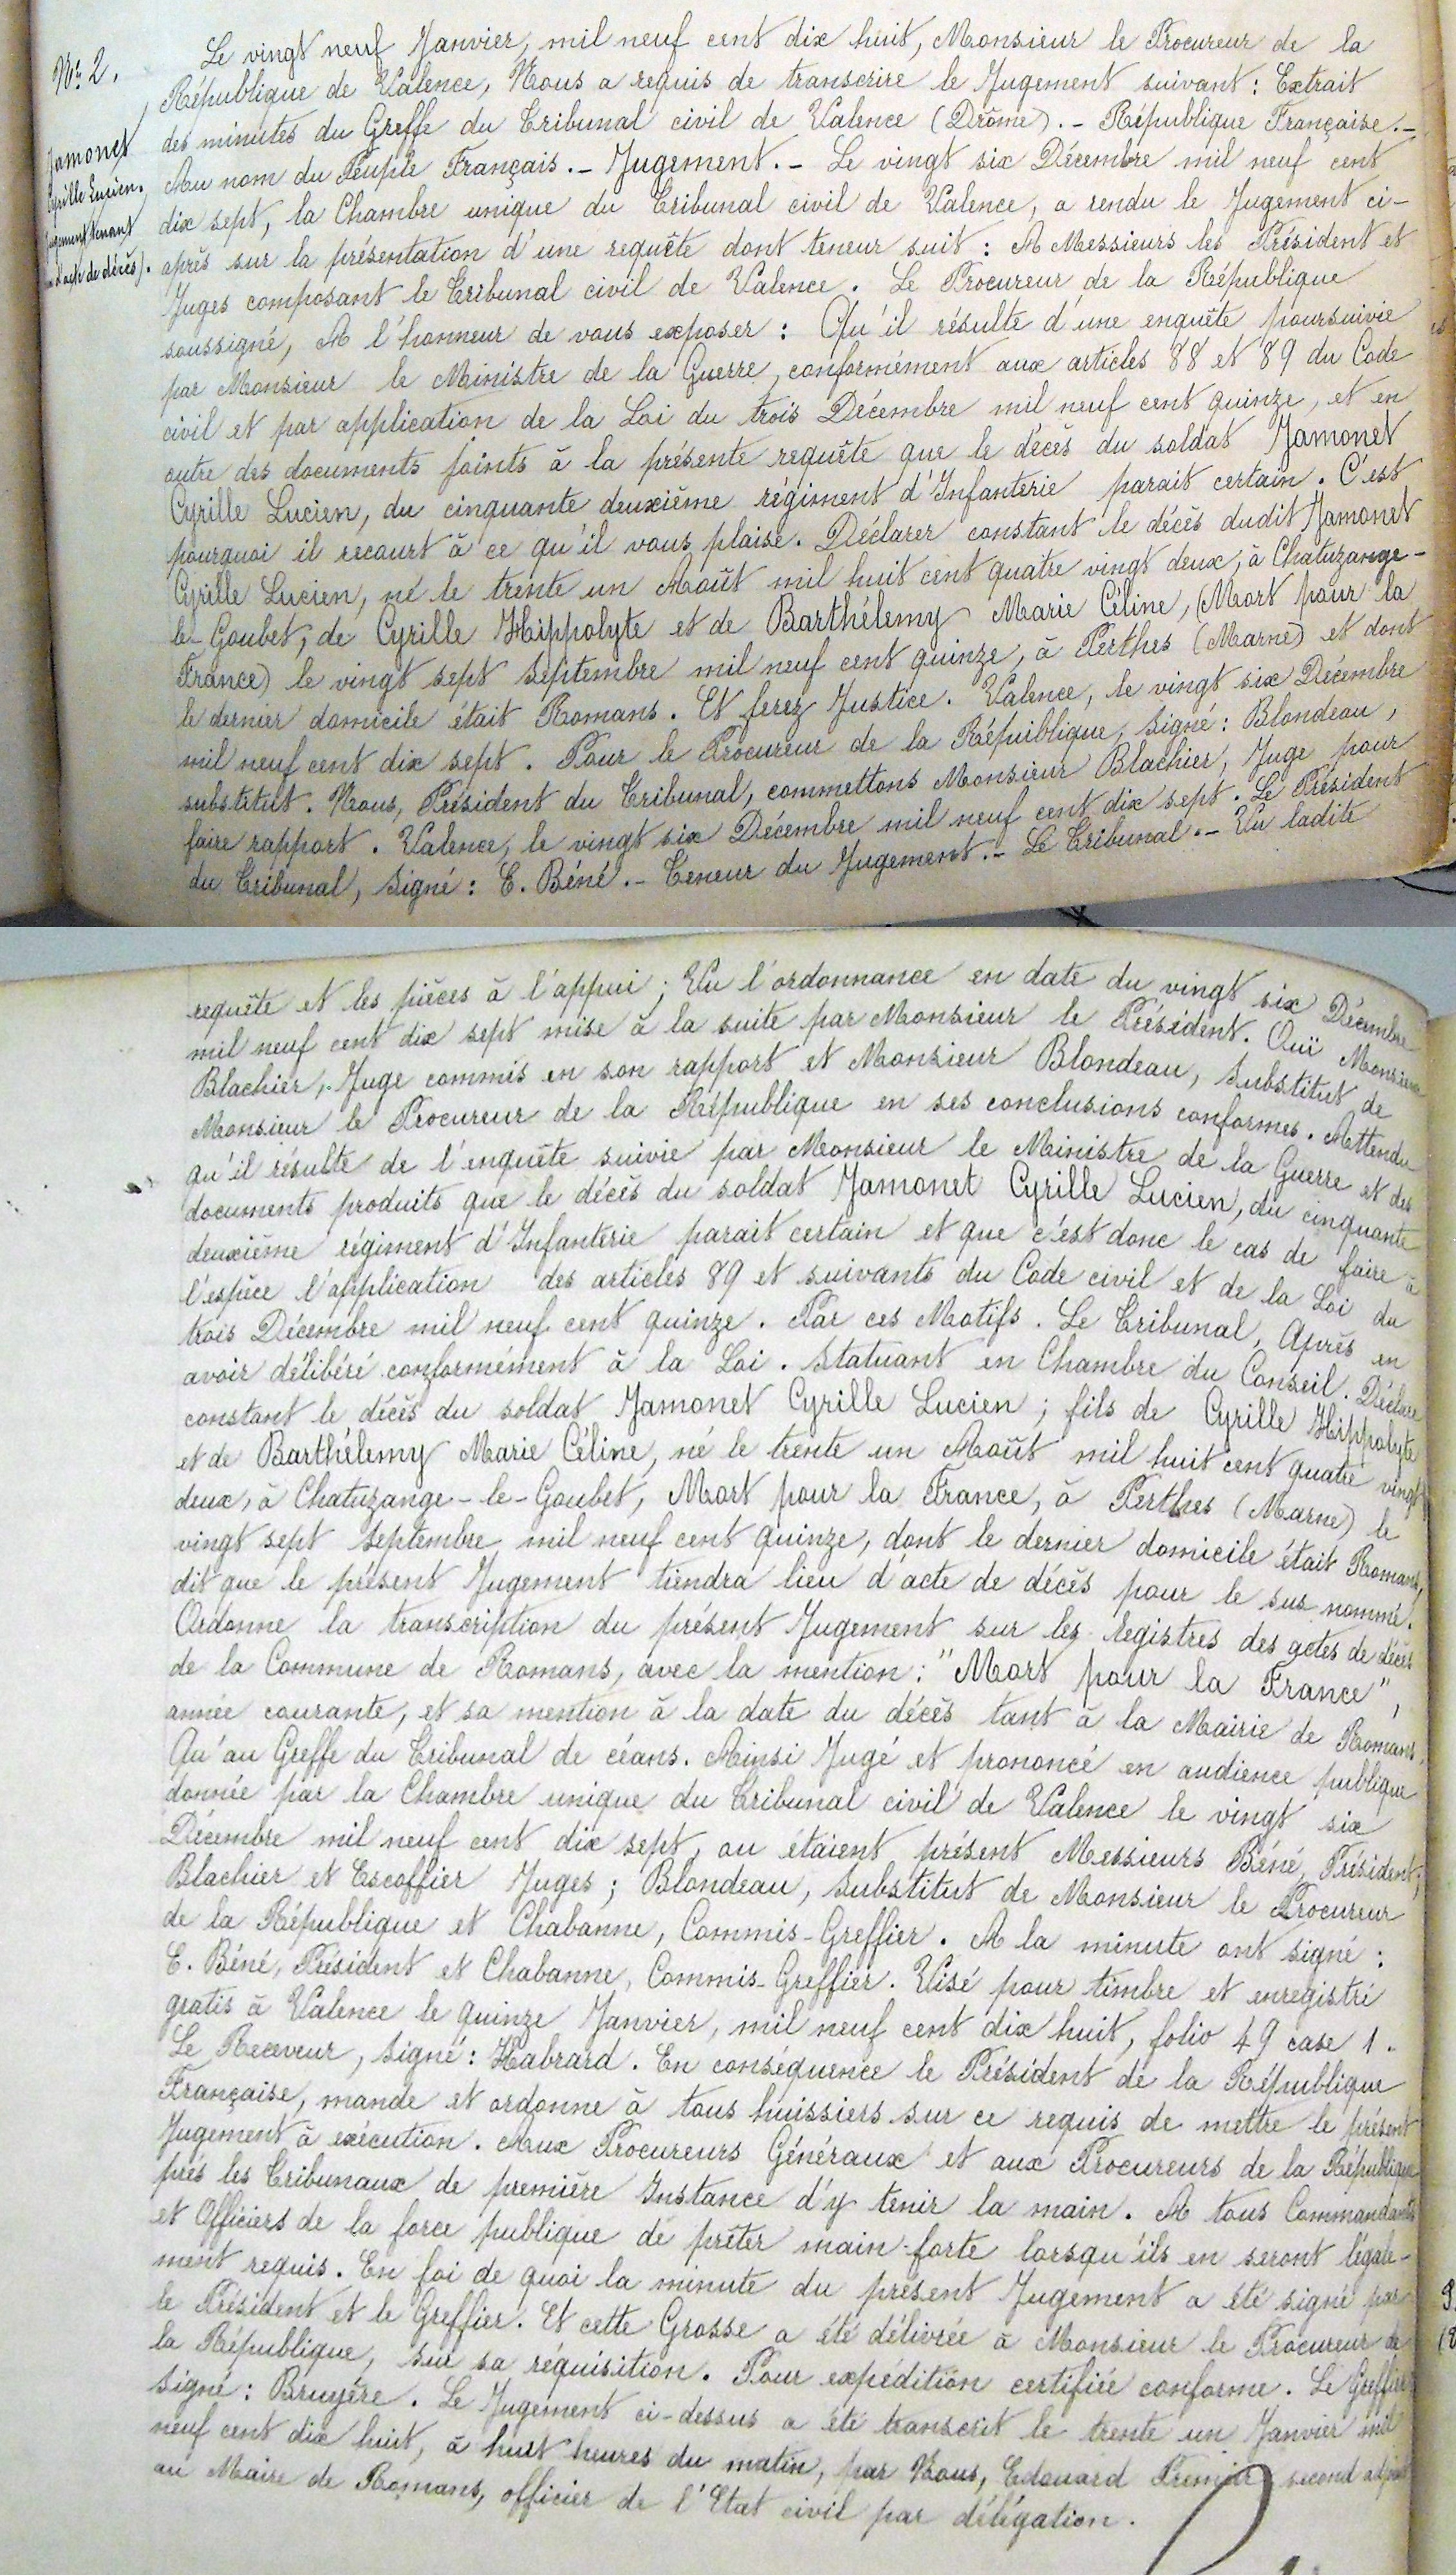 No. 2.
Jamonet
Cyrille Lucien.
Jugement tenant
lieu d'acte de décès).
Le vingt neuf Janvier, mil neuf cent dix huit, Monsieur le Procureur de la
République de Valence, Nous a requis de transcrire le Jugement suivant : Extrait
des minutes du Greffe du Tribunal civil de Valence (Drôme). - République Française. -
Au nom du Peuple Français. - Jugement. - Le vingt six Décembre mil neuf cent
dix sept, la Chambre unique du Tribunal civil de Valence, a rendu le Jugement ci-
après sur la présentation d'une requête dont teneur suit : A Messieurs les Président et
Juges composant le Tribunal civil de Valence. Le Procureur de la République
soussigné, A l'honneur de vous exposer : Qu'il résulte d'une enquête poursuivie
par Monsieur le Ministre de la Guerre, conformément aux articles 88 et 89 du Code
civil et par application de la Loi du trois Décembre mil neuf cent quinze, et en
outre des documents joints à la présente requête que le décès du soldat Jamonet
Cyrille Lucien, du cinquante deuxième régiment d'Infanterie parait certain. C'est
pourquoi il recourt à ce qu'il vous plaise. Déclarer constant le décès dudit Jamonet
Cyrille Lucien, né le trente un Août mil huit cent quatre vingt deux, à Chatuzange-
le-Goubet, de Cyrille Hippolyte et de Barthélemy Marie Céline, (Mort pour la
France) le vingt sept Septembre mil neuf cent quinze, à Perthes (Marne) et dont
le dernier domicile était Romans. Et ferez Justice. Valence, le vingt six Décembre
mil neuf cent dix sept. Pour le Procureur de la Répuiblique, Signé : Blondeau,
substitut. Nous, Président du Tribunal, commettons Monsieur Blachier, Juge pour
faire rapport. Valence, le vingt six Décembre mil neuf cent dix sept. Le Président
du Tribunal, Signé : E. Béné. - Teneur du Jugement. - Le Tribunal. - Vu ladite
requête et les pièces à l'appui ; Vu l'ordonnance en date du vingt six Décembre
mil neuf cent dix sept mise à la suite par Monsieur le Président. Ouï Monsieur
Blachier, Juge commis en son rapport et Monsieur Blondeau, Substitut de
Monsieur le Procureur de la République en ses conclusions conformes. Attendu
qu'il résulte de l'enquête suivie par Monsieur le Ministre de la Guerre et des
documents produits que le décès du soldat Jamonet Cyrille Lucien, du cinquante
deuxième régiment d'Infanterie parait certain et que c'est donc le cas de faire à
l'espèce l'application des articles 89 et suivants du Code civil et de la Loi du
trois Décembre mil neuf cent quinze. Par ces Motifs. Le Tribunal, Après en
avoir délibéré conformément à la Loi. Statuant en Chambre du Conseil. Déclare
constant le décès du soldat Jamonet Cyrille Lucien ; fils de Cyrille Hippolyte
et de Barthélemy Marie Céline, né le trente un Août mil huit cent quatre vingt
deux, à Chatuzange-le-Goubet, Mort pour la France, à Perthes (Marne) le
vingt sept Septembre mil neuf cent quinze, dont le dernier domicile était Romans,
dit que le présent Jugement tiendra lieu d'acte de décès pour le sus nommé.
Ordonne la transcription du présent Jugement sur les registres des actes de décès
de la Commune de Romans, avec la mention : "Mort pour la France",
année courante, et sa mention à la date du décès tant à la Mairie de Romans,
Qu'au Greffe du Tribunal de céans. Ainsi Jugé et prononcé en audience publique
donnée par la Chambre unique du Tribunal civil de Valence le vingt six
Décembre mil neuf cent dix sept, ou étaient présent Messieurs Béné, Président ;
Blachier et Escoffier Juges ; Blondeau, Substitut de Monsieur le Procureur
de la République et Chabanne, Commis-Greffier. A la minute ont signé :
E. Béné, Président et Chabanne, Commis-Greffier. Visé pour timbre et enregistré
gratis à Valence le quinze Janvier, mil neuf cent dix huit, folio 49 case 1.
Le Receveur, Signé : Habrard. En conséquence le Président de la République
Française, mande et ordonne à tous huissiers sur ce requis de mettre le présent
Jugement à exécution. Aux Procureurs Généraux et aux Procureurs de la République
près les Tribunaux de première Instance d'y tenir la main. A tous Commandants
et Officiers de la force publique de prêter main-forte lorsqu'ils en seront légale-
ment requis. En foi de quoi la minute du présent Jugement a été signé par
le Président et le Greffier. Et cette Grosse a été délivrée à Monsieur le Procureur de
la République, sur sa réquisition. Pour expédition certifiée conforme. Le Greffier
Signé : Bruyère. Le Jugement ci-dessus a été transcrit le trente un Janvier mil
neuf cent dix huit, à huit heures du matin, par Nous, Edouard Premier second adjoint
au Maire de Romans, officier de l'Etat civil par délégation.